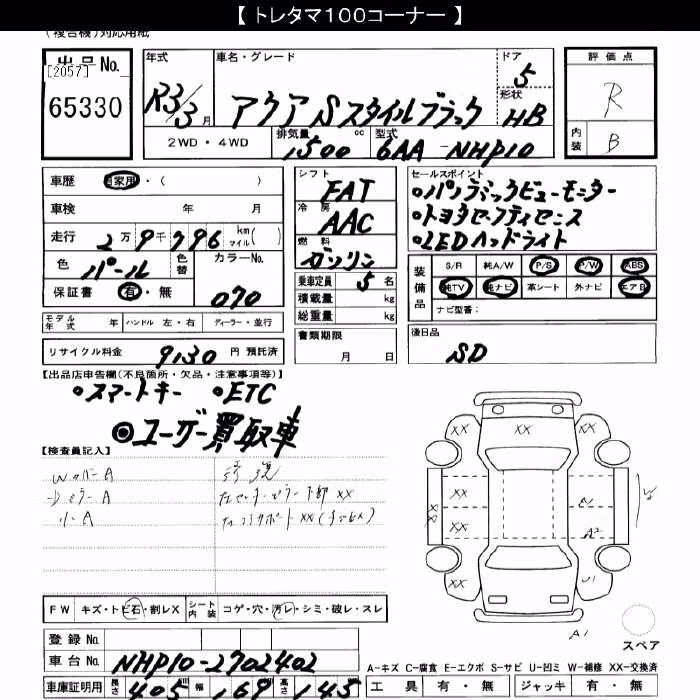 【 トレタマ100コーナー 】
(複合機)対応用紙
出品No.
[2057]
65330
年式
R3/3月
車名・グレード
アクア Sスタイルブラック
ドア
5
形状
HB
評価点
R
内装
B
2WD ・ 4WD
排気量
1500 cc
型式
6AA-NHP10
車歴
自家用・( )
車検 年 月
走行 2万9千796 km マイル( )
色
パール
色替
カラーNo.
070
保証書 有・無
モデル年式 年
ハンドル 左・右
ディーラー・並行
リサイクル料金 9130 円 預託済
シフト
FAT
冷房
AAC
燃料
ガソリン
乗車定員 5 名
積載量 kg
総重量 kg
書類期限
月 日
セールスポイント
○パノラミックビューモニター
○トヨタセーフティセンス
○LEDヘッドライト
装備品
S/R 純A/W P/S P/W ABS
純TV 純ナビ 革シート 外ナビ エアB
ナビ型番:
後日品
SD
【出品店申告欄(不良箇所・欠品・注意事項等)】
○スマートキー ○ETC
◎ユーザー買取車
【検査員記入】
FW キズ・トビ石・割レX
シート内装 コゲ・穴・汚レ・シミ・破レ・スレ
登録No.
車台No.
NHP10-2702402
車庫証明用 長さ 405 幅 169 高さ 145
XX XX XX
XX
XX
XX
A2
U1
A1
スペア
A-キズ C-腐食 E-エクボ S-サビ U-凹ミ W-補修 XX-交換済
工具 有・無 ジャッキ 有・無